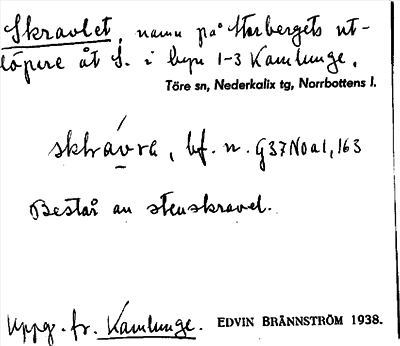 Skravlet, namn på Storbergets ut-
löpare åt S. i byn 1-3 Kamlunge.
Töre sn, Nederkalix tg, Norrbottens l.
skrávrə, bf. n. G37Noa1,163
Består av stenskravel.
Uppg. fr. Kamlunge. EDVIN BRÄNNSTRÖM 1938.